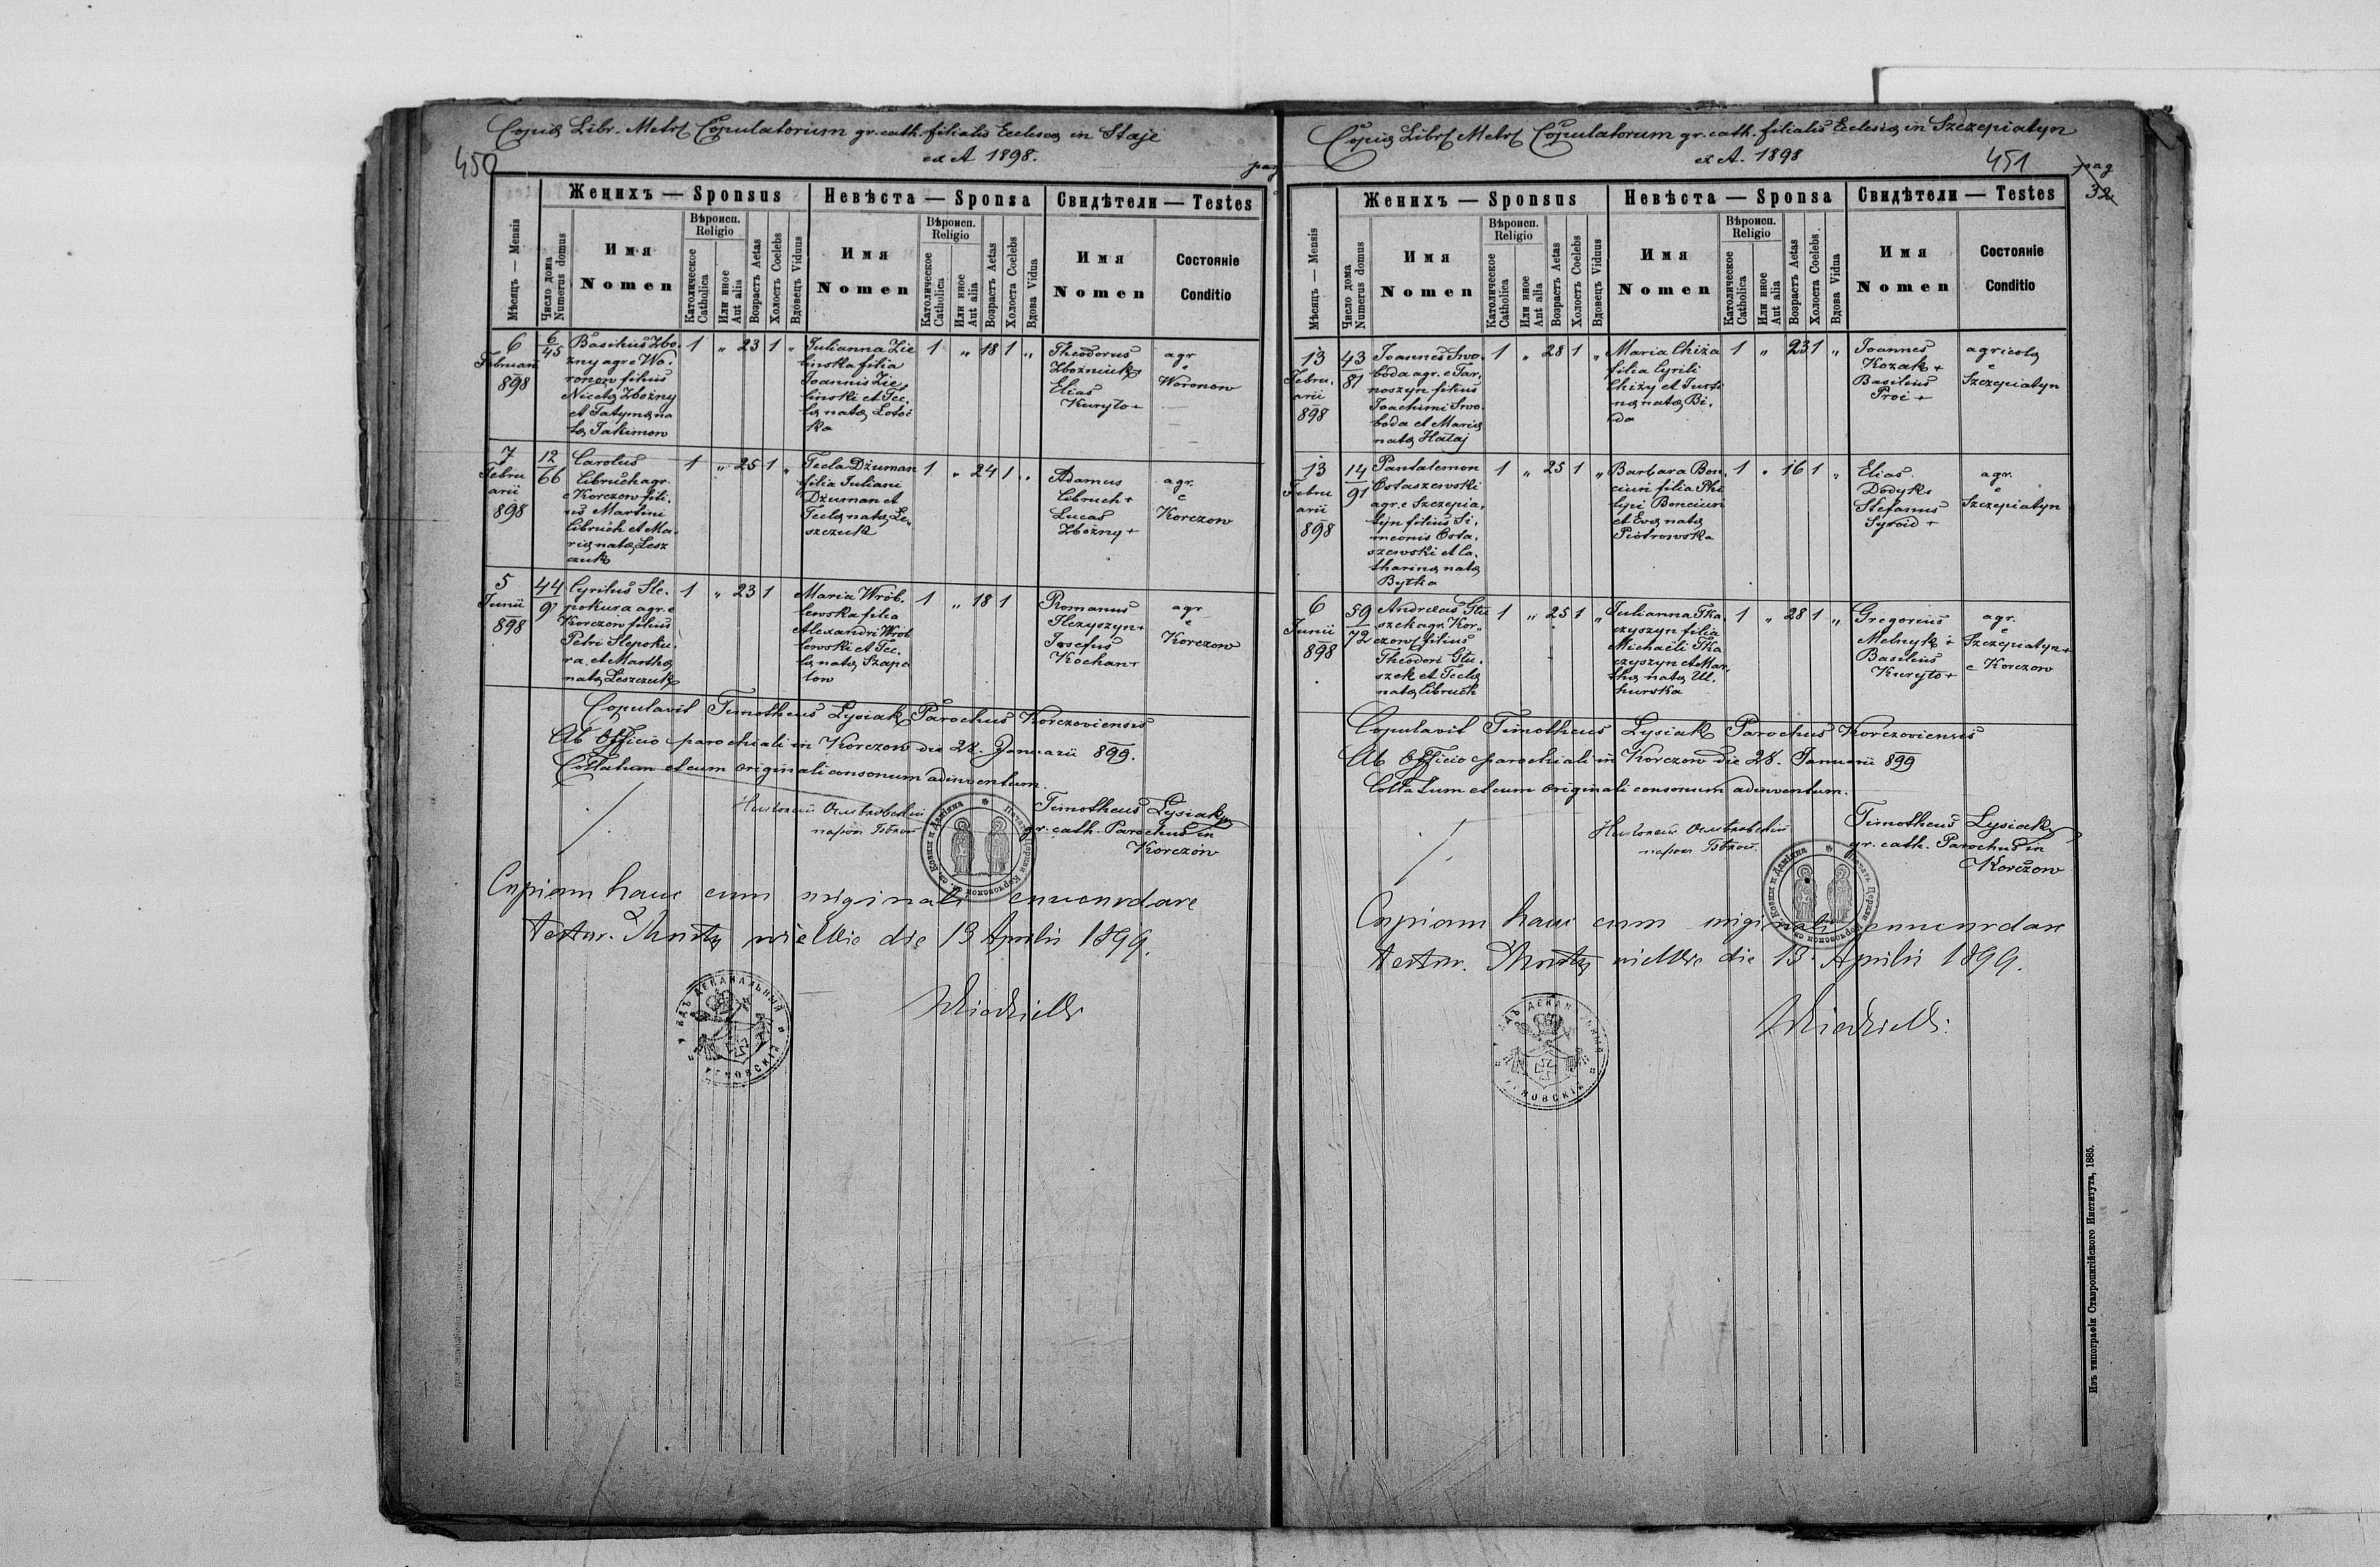 Copia Libr. Metr. Copulatorum gr. cath. filialis Ecclesiæ in Staje
ex A 1898.
450
pag
Женихъ — Sponsus
Невѣста — Sponsa
Свидѣтели — Testes
Мѣсяцъ — Mensis
Число дома
Numerus domus
Имя
Nomen
Вѣроисп.
Religio
Католическое
Catholica
Или иное
Aut alia
Возрастъ Aetas
Холостъ Coelebs
Вдовецъ Viduus
Имя
Nomen
Вѣроисп.
Religio
Католическое
Catholica
Или иное
Aut alia
Возрастъ Aetas
Холоста Coelebs
Вдова Vidua
Имя
Nomen
Состояніе
Conditio
6
Februarii
898
6
45
Basilius Zbo.
zny agr e Wo.
ronow filius
Nicetæ Zbożny
et Tatyanæ na
tæ Jakimow
1 „ 23 1 „
Julianna Zie
linska filia
Joannis Zie.
linski et Tec.
læ natæ Łotoc
ka
1 „ 18 1 „
Theodorus
Zbożniuk
Elias
Kuryło +
agr
e
Woronow
7
Febru
arii
898
12
66
Carolus
Cibruch agr.
e Korczow fili.
us Martini
Cibruch et Ma.
riæ natæ Lesz
czuk
1 „ 25 1 „
Tecla Dżuman
filia Juliani
Dżuman et
Teclæ natæ Le.
szczuk
1 „ 24 1 „
Adamus
Cibruch +
Lucas
Zbożny +
agr.
e
Korczow
5
Junii
898
44
9
Cyrilus Sle.
pokura agr. e
Korczow filius
Petri Slepoku.
ra et Marthæ
natæ Leszczuk
1 „ 23 1
Maria Wrób.
lewska filia
Alexandri Wrób
lewski et Tec.
læ natæ Szapo
low
1 „ 18 1 „
Romanus
Josefus
Kochan +
agr
e
Korczow
Copulavit Timotheus Lysiak Parochus Korczoviensis
Ab Officio parochiali in Korczow die 28. Januarii 899.
Collatum et cum originali consonum adinventum.
Timotheus Lysiak
gr. cath. Parochus in
Korczów
Copiam hanc cum originali concordare
testor. die 13 Aprilis 1899.
Copia Libr. Metr. Copulatorum gr. cath. filialis Ecclesiæ in Szczepiatyn
ex A. 1898
451
pag
32
Женихъ — Sponsus
Невѣста — Sponsa
Свидѣтели — Testes
Мѣсяцъ — Mensis
Число дома
Numerus domus
Имя
Nomen
Вѣроисп.
Religio
Католическое
Catholica
Или иное
Aut alia
Возрастъ Aetas
Холостъ Coelebs
Вдовецъ Viduus
Имя
Nomen
Вѣроисп.
Religio
Католическое
Catholica
Или иное
Aut alia
Возрастъ Aetas
Холоста Coelebs
Вдова Vidua
Имя
Nomen
Состояніе
Conditio
13
Febru.
arii
898
43
81
Joannes Swo.
boda agr. e Tar.
noszyn filius
Joachimi Swo.
boda et Mariæ
natæ Hałaj
1 „ 28 1 „
Maria Chiża
filia Cyrili
Chiży et Justi
næ natæ Bi.
da
1 „ 23 1 „
Joannes
Kozak +
Basilius
Proć +
agricolæ
e
Szczepiatyn
13
Febru
arii
898
14
91
Pantalemon
Ostaszewski
agr. e Szczepia.
tyn filius Si.
meonis Osta.
szewski et Ca.
tharinæ natæ
Bytka
1 „ 25 1 „
Barbara Bon.
ciun filia Phi
lipi Bonciun
et Evæ natæ
Piotrowska
1 „ 16 1 „
Elias
Dodyk
Stefanus
Syroid +
agr.
e
Szczepiatyn
6
Junii
898
59
72
Andreas Glu
szek agr. Kor.
czow filius
Theodori Glu.
szek et Teclæ
natæ Cibruch
1 „ 25 1 „
Julianna Tka.
czyszyn filia
Michaeli Tka
czyszyn et Mar.
thæ natæ Uł.
hurska
1 „ 28 1 „
Gregorius
Melnyk +
Basilius
Kuryło +
agr.
e
Szczepiatyn +
e Korczow
Copulavit Timotheus Lysiak Parochus Korczoviensis
Ab Officio parochiali in Korczow die 28. Januarii 899
Collatum et cum originali consonum adinventum.
Timotheus Lysiak
gr. cath. Parochus in
Korczow
Copiam hanc cum originali concordare
testor. die 13 Aprilis 1899.
Изъ типографіи Ставропигійского Института, 1885.